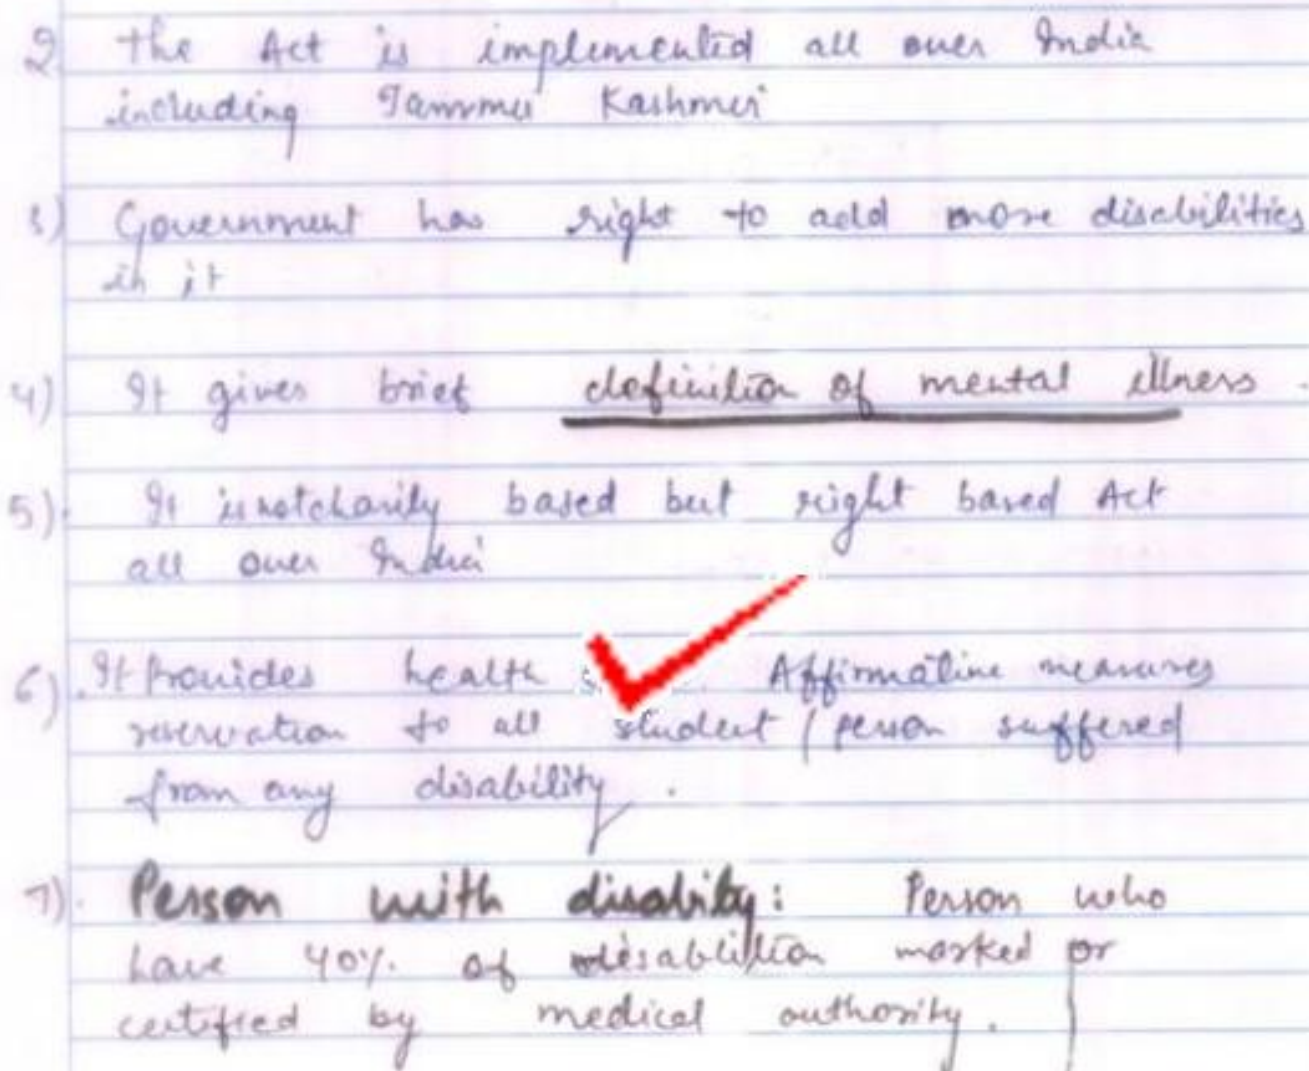 2) The Act is implemented all over India
including Jammu Kashmir
3) Government has right to add more disabilities
in it
4) It gives brief definition of mental illness.
5) It is not charity based but right based Act
all over India
6) It Provides health Affirmative measures
reservation to all student / person suffered
from any disability.
7) Person with disability: Person who
have 40% of disablition marked or
certified by medical authority.